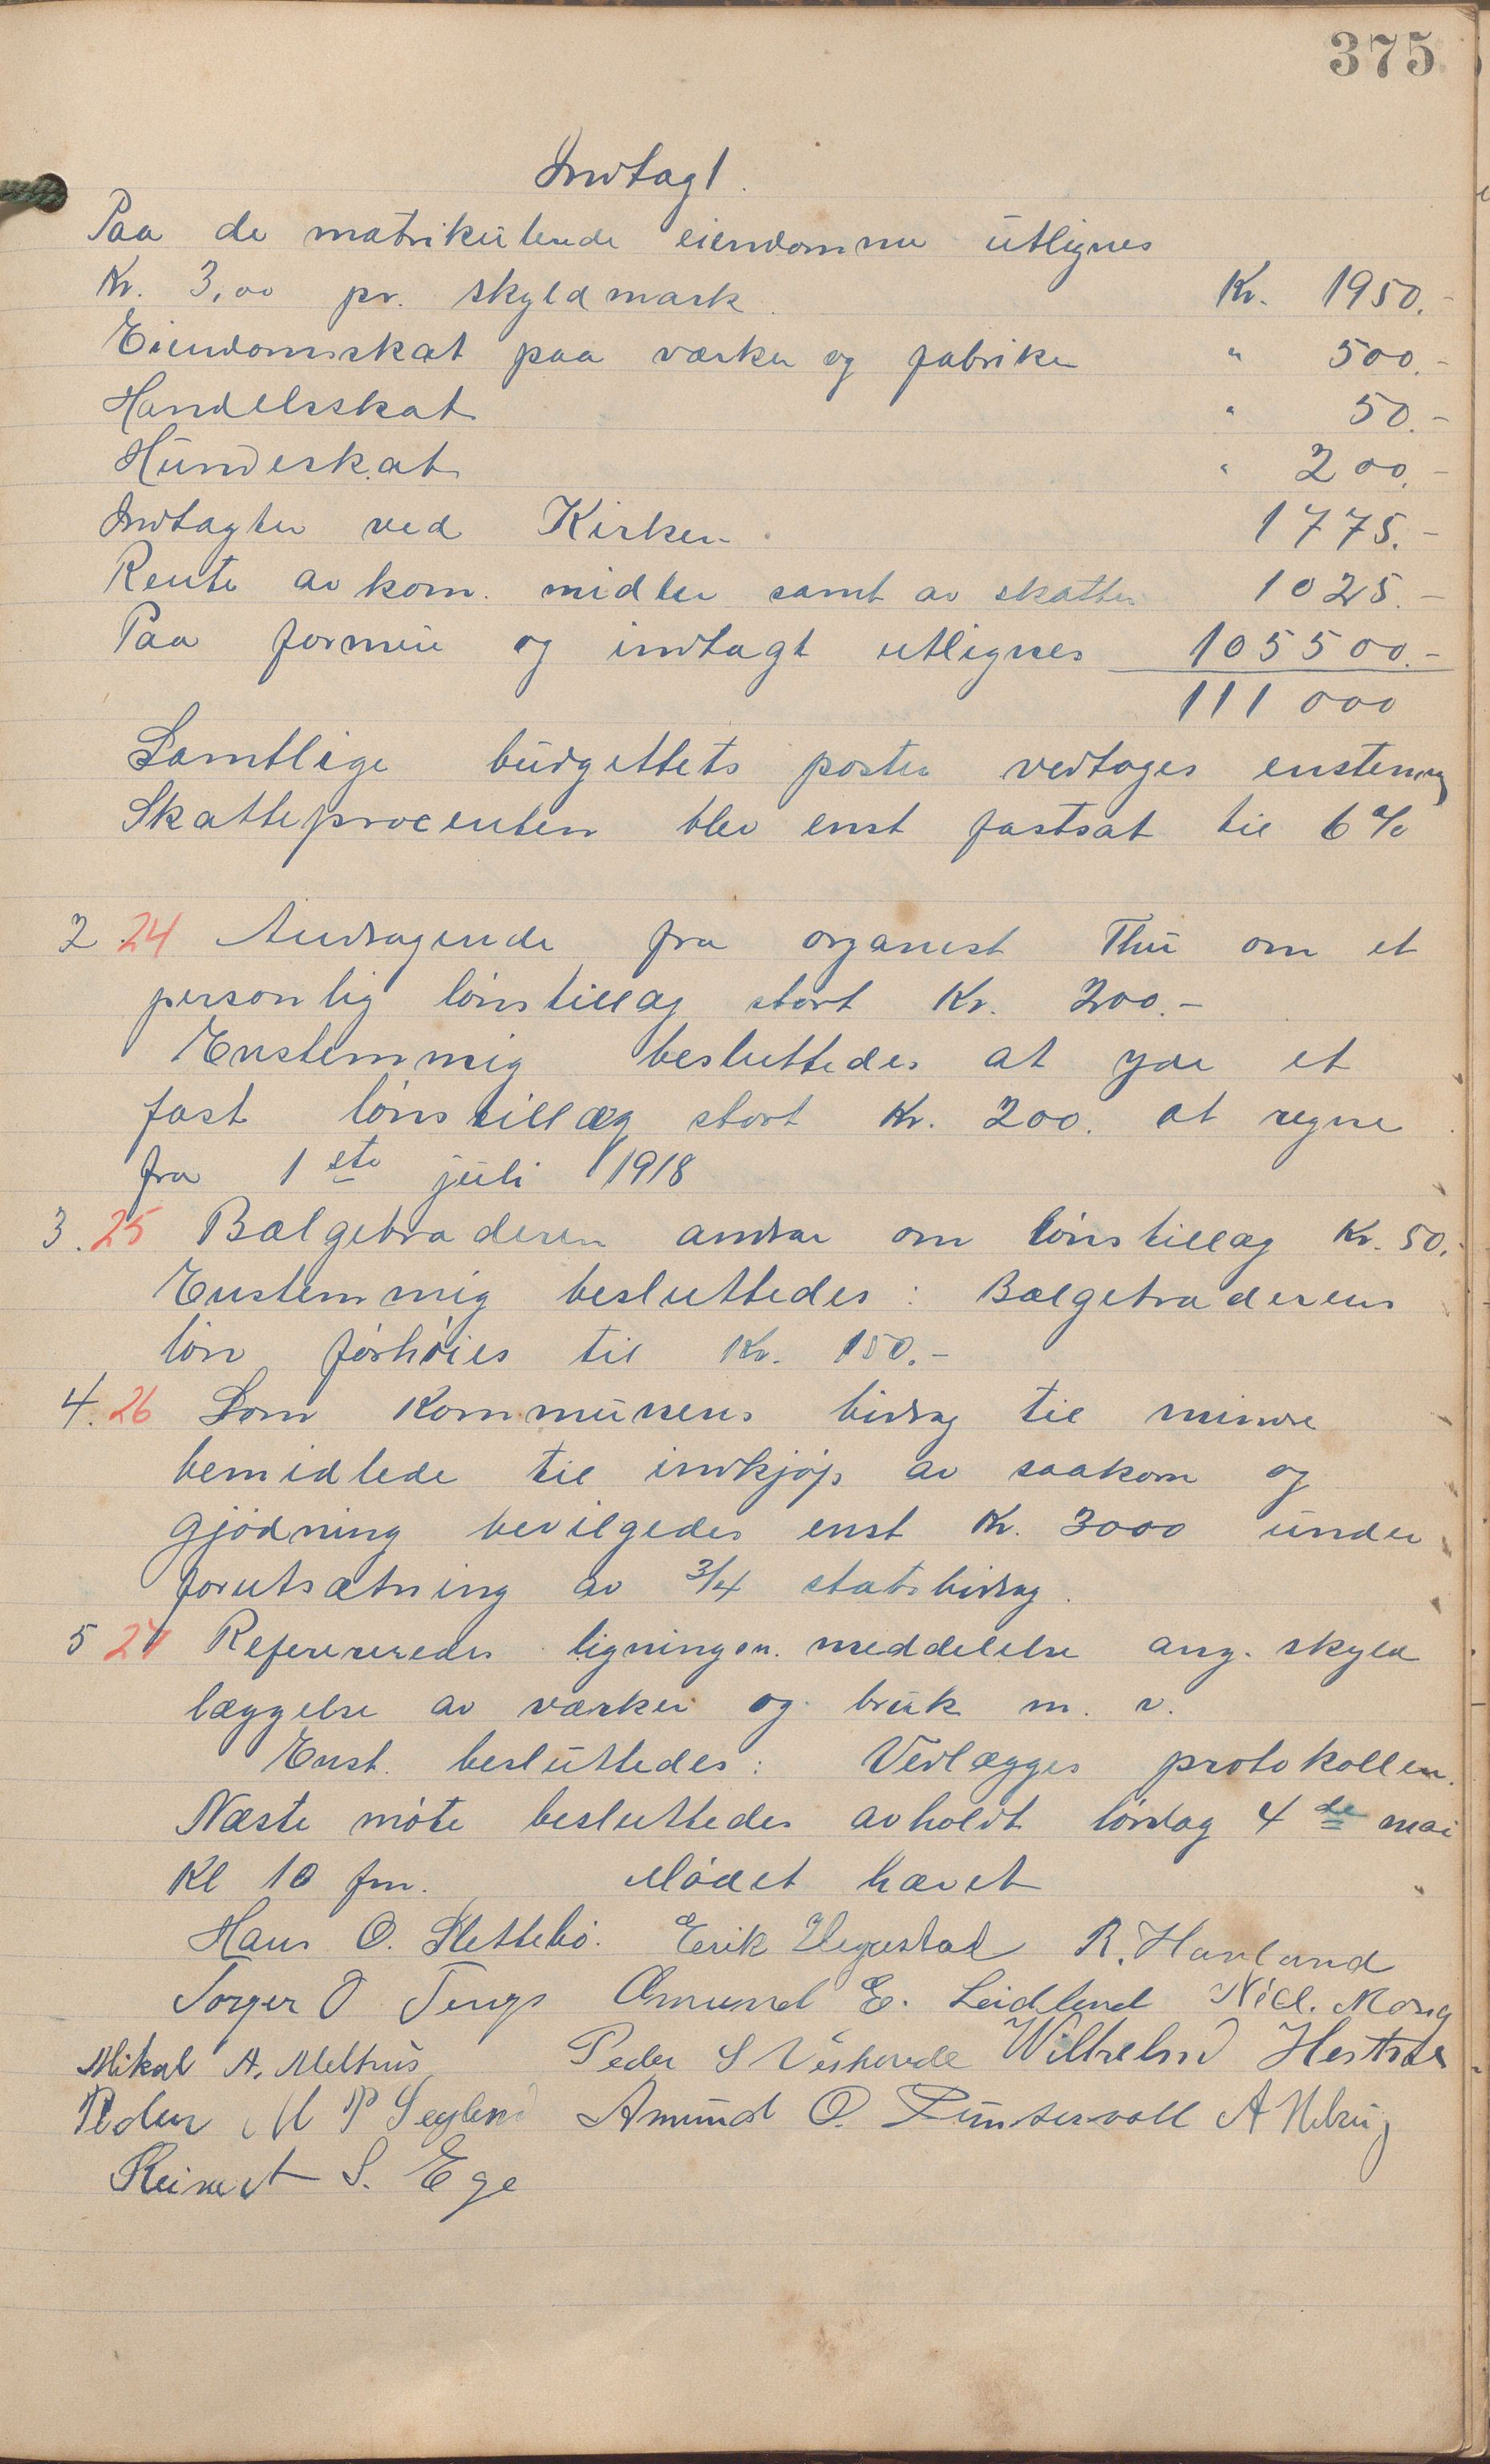 375
Indtægt.
Paa de matrikulerede eiendomme utlignes
Kr. 3,00 pr. skyldmark. Kr. 1950.-
Eiendomsskat paa værker og fabriker " 500.-
Handelsskat " 50.-
Hundeskat " 200.-
Indtægter ved Kirken. 1775.-
Rente av kom. midler samt av skatter 1025.-
Paa formue og indtægt utlignes 105500.-
111 000
Samtlige budgettets poster vedtages enstemmig
Skatteprocenten blev enst fastsat til 6 %
2 24 Andragende fra organist Thu om et
personlig lönstillæg stort Kr. 200.-
Enstemmig besluttedes at yde et
fast lönstillæg stort Kr. 200. at regne
fra 1ste juli 1918
3. 25 Bælgetræderen andrar om lönstillæg Kr. 50.-
Enstemmig besluttedes: Bælgetræderens
lön forhöies til Kr. 150.-
4. 26 Som Kommunens bidrag til mindre
bemidlede til indkjöp av saakorn og
gjödning bevilgedes enst Kr. 3000 under
forutsætning av 3/4 statsbidrag.
5 27 Refereredes ligningsn. meddelelse ang. skyld
læggelse av værker og bruk m. v.
Enst. besluttedes: Vedlægges protokollen.
Næste möte besluttedes avholdt lördag 4de mai
Kl 10 fm. Mödet hævet
Hans O. Slettebö. Erik Vegestad R. Havland
Torger O Tengs Omund E. Leidland Nicl. Mong
Mikal A. Melhus Peder S Wilhelm
Peder M P Segland Amund O. Puntervoll A
Reinert S. Ege